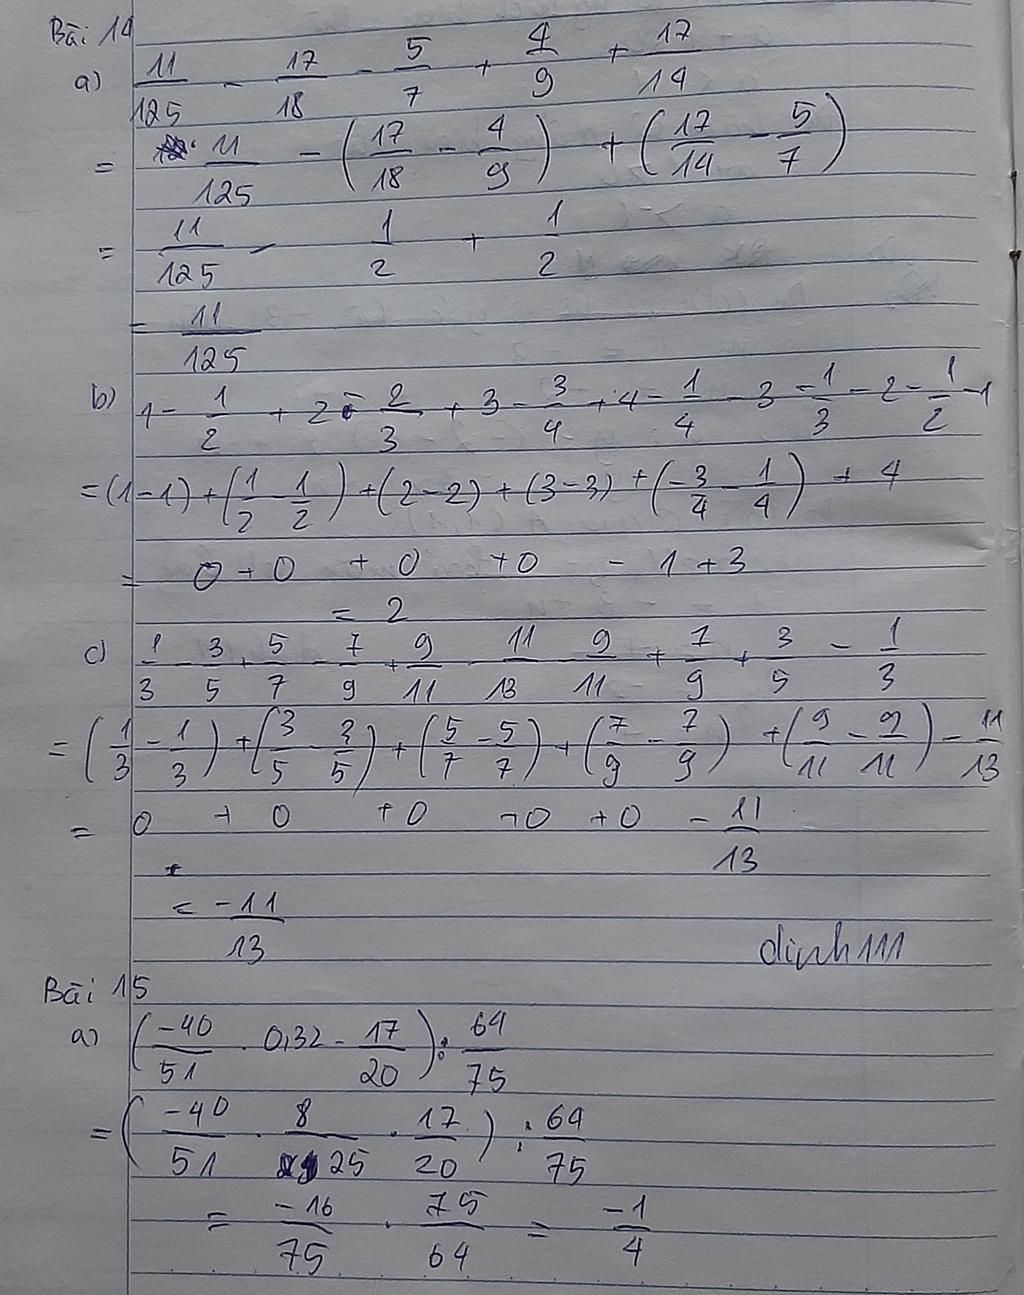 Bài 14
a) 11/125 - 17/18 - 5/7 + 4/9 + 17/14
= 11/125 - (17/18 - 4/9) + (17/14 - 5/7)
= 11/125 - 1/2 + 1/2
= 11/125
b) 1 - 1/2 + 2 - 2/3 + 3 - 3/4 + 4 - 1/4 - 3 - 1/3 - 2 - 1/2 - 1
= (1 - 1) + (1/2 - 1/2) + (2 - 2) + (3 - 3) + (-3/4 - 1/4) + 4
= 0 + 0 + 0 + 0 - 1 + 3
= 2
c) 1/3 - 3/5 + 5/7 - 7/9 + 9/11 - 11/13 - 9/11 + 7/9 + 3/5 - 1/3
= (1/3 - 1/3) + (3/5 - 3/5) + (5/7 - 5/7) + (7/9 - 7/9) + (9/11 - 9/11) - 11/13
= 0 + 0 + 0 + 0 + 0 - 11/13
= -11/13
dinh111
Bài 15
a) (-40/51 . 0,32 - 17/20) : 64/75
= (-40/51 . 8/25 . 17/20) : 64/75
= -16/75 . 75/64 = -1/4